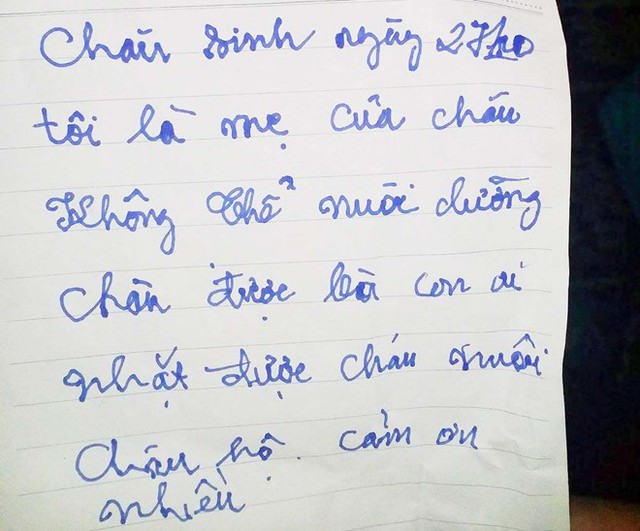 Cháu sinh ngày 27/10
tôi là mẹ của cháu
Không thể nuôi dưỡng
cháu được bà con ai
nhặt được cháu nuôi
cháu hộ. cảm ơn
nhiều